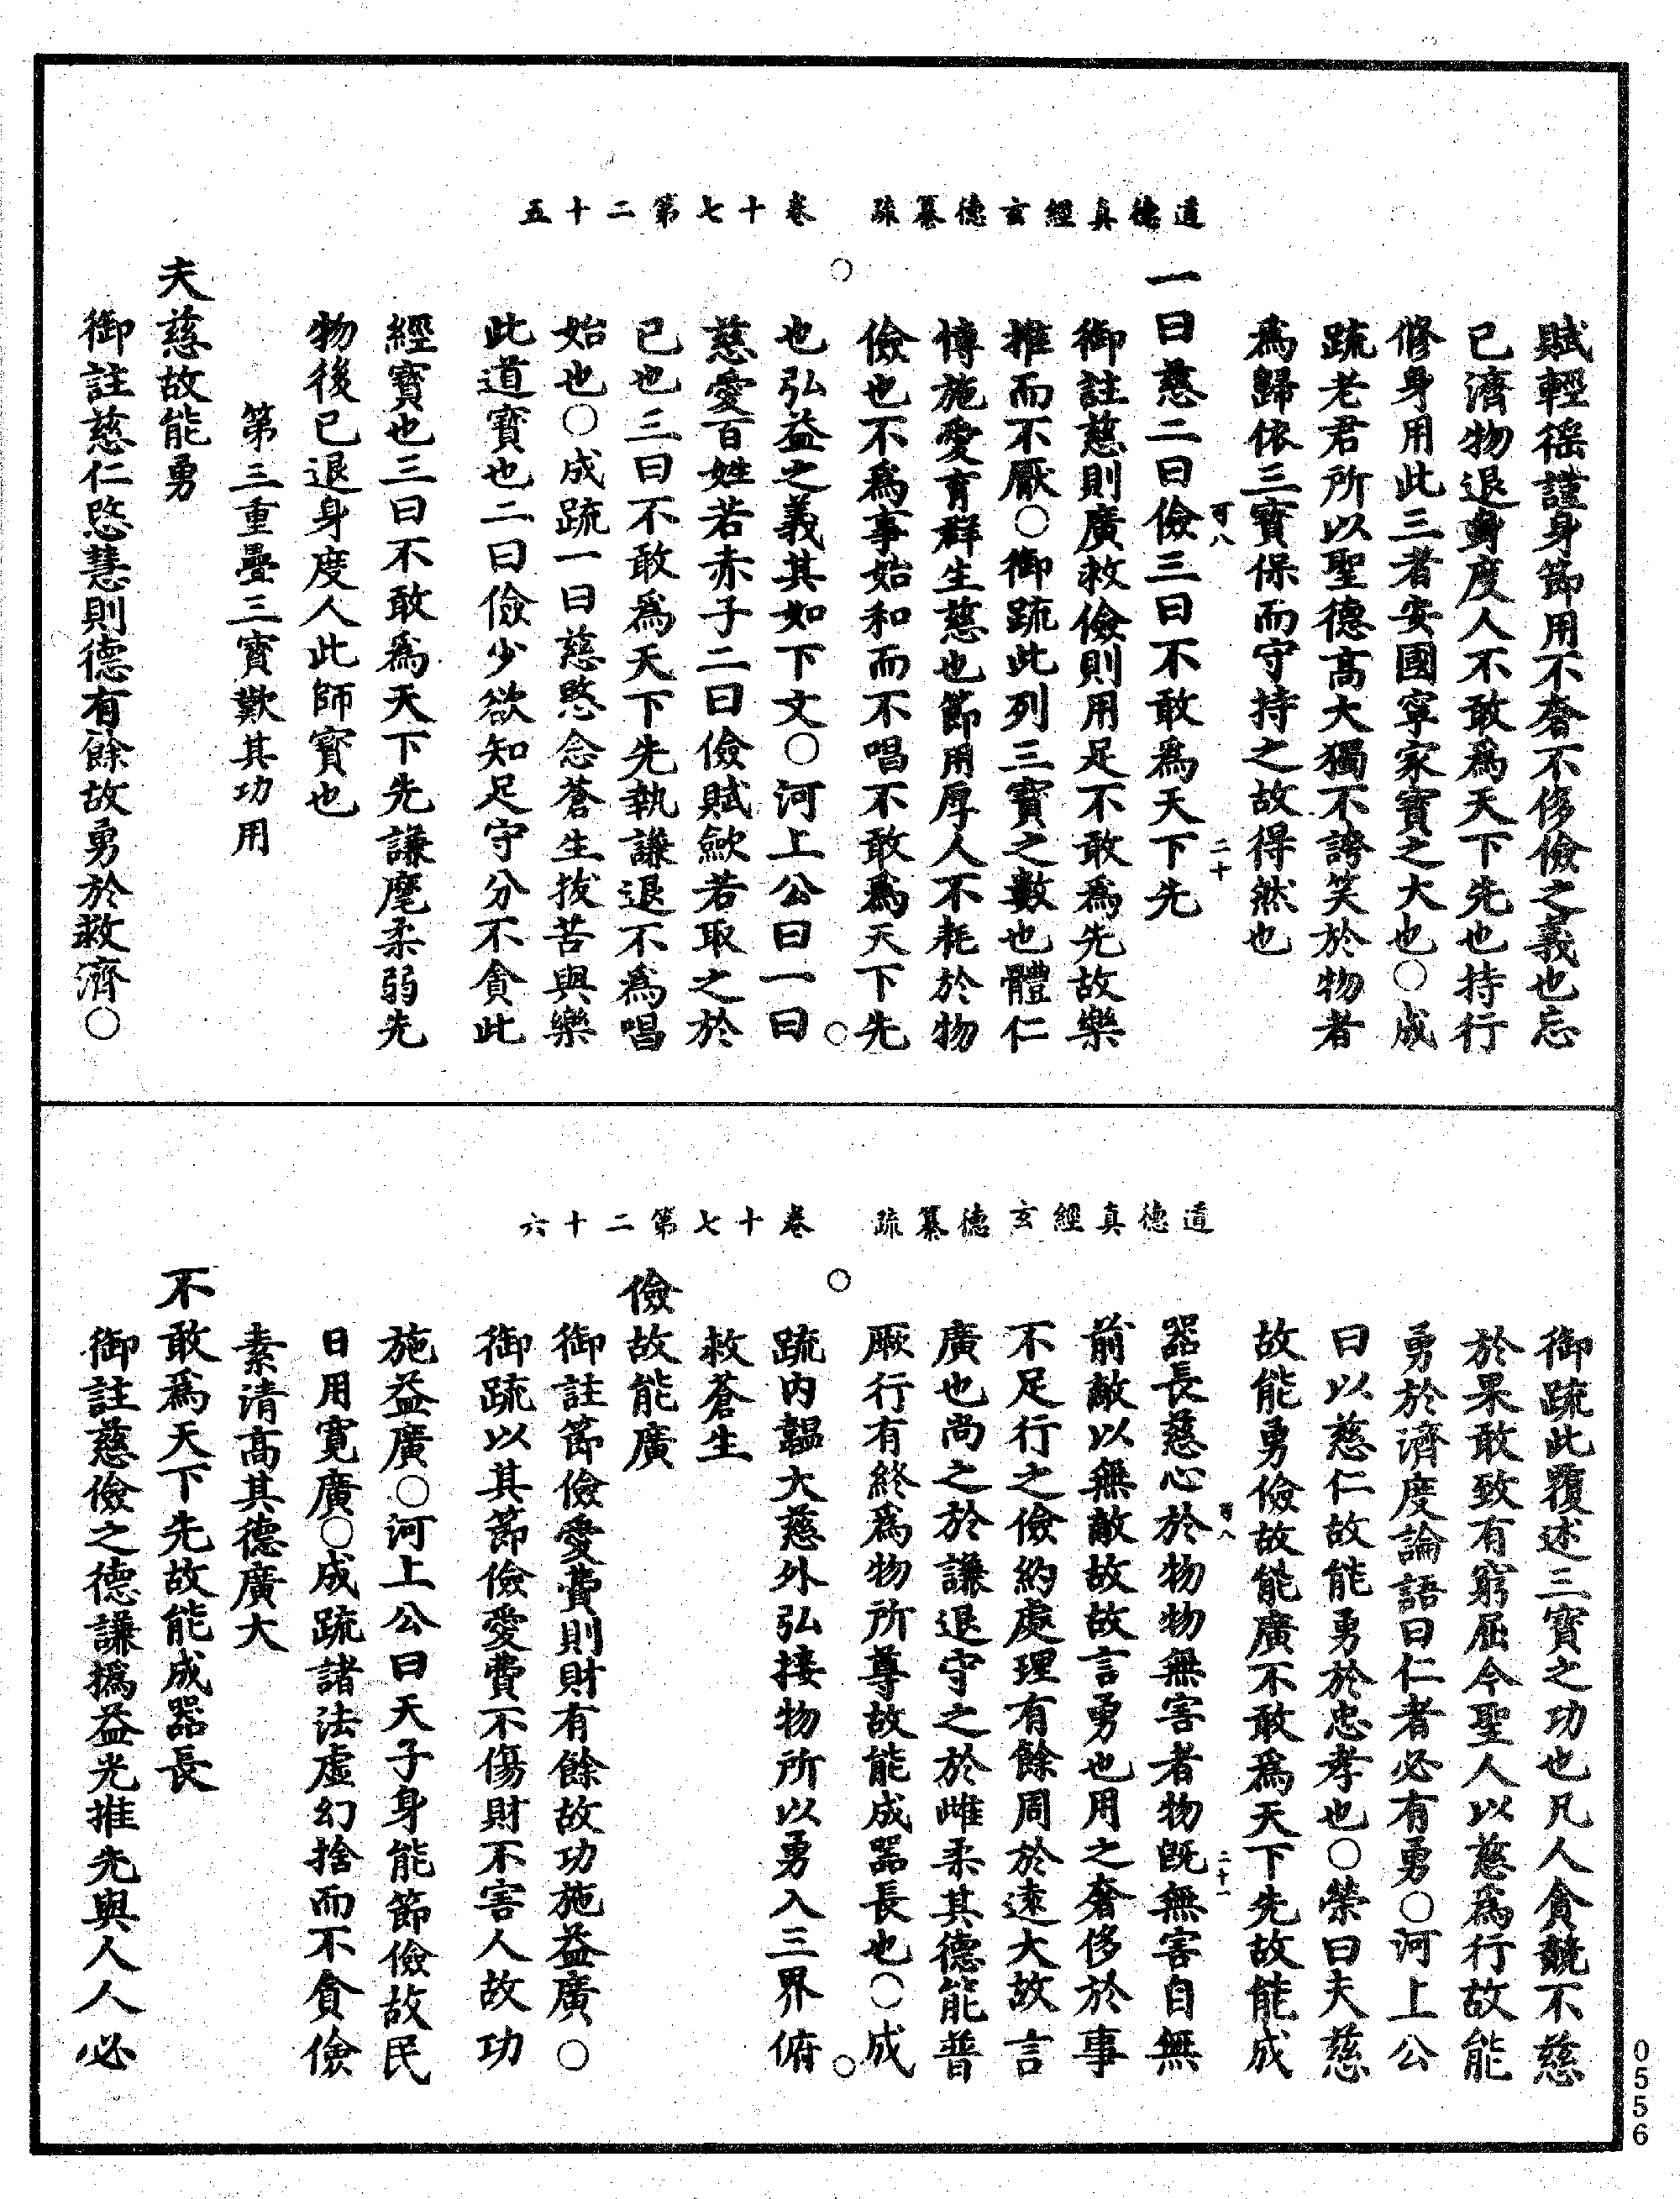 道德真經玄德纂疏　卷十七第二十五
賦輕徭謹身節用不奢不侈儉之義也忘
已濟物退身度人不敢為天下先也持行
修身用此三者安國寧家寶之大也○成
疏老君所以聖德高大獨不誇笑於物者
為歸依三寶保而守持之故得然也
可八
二十
一曰慈二曰儉三曰不敢為天下先
御註慈則廣救儉則用足不敢為先故樂
推而不厭○御疏此列三寶之數也體仁
博施愛育群生慈也節用厚人不耗於物
儉也不為事始和而不唱不敢為天下先
也弘益之義其如下文○河上公曰一曰
慈愛百姓若赤子二曰儉賦歛若取之於
已也三曰不敢為天下先執謙退不為唱
始也○成疏一曰慈愍念蒼生拔苦與樂
此道寶也二曰儉少欲知足守分不貪此
經寶也三曰不敢為天下先謙麾柔弱先
物後已退身度人此師寶也
第三重疊三寶歎其功用
夫慈故能勇
御註慈仁愍慧則德有餘故勇於救濟○
道德真經玄德纂疏　卷十七第二十六
御疏此覆述三寶之功也凡人貪競不慈
於果敢致有窮屈今聖人以慈為行故能
勇於濟度論語曰仁者必有勇○河上公
曰以慈仁故能勇於忠孝也○榮曰夫慈
故能勇儉故能廣不敢為天下先故能成
可八
二十一
器長慈心於物物無害者物既無害自無
前敵以無敵故故言勇也用之奢侈於事
不足行之儉約處理有餘周於遠大故言
廣也尚之於謙退守之於雌柔其德能普
厥行有終為物所尊故能成器長也○成
疏內韞大慈外弘接物所以勇入三界俯
救蒼生
儉故能廣
御註節儉愛費則財有餘故功施益廣○
御疏以其節儉愛費不傷財不害人故功
施益廣○河上公曰天子身能節儉故民
日用寬廣○成疏諸法虛幻捨而不貪儉
素清高其德廣大
不敢為天下先故能成器長
御註慈儉之德謙撝益光推先與人人必
0556